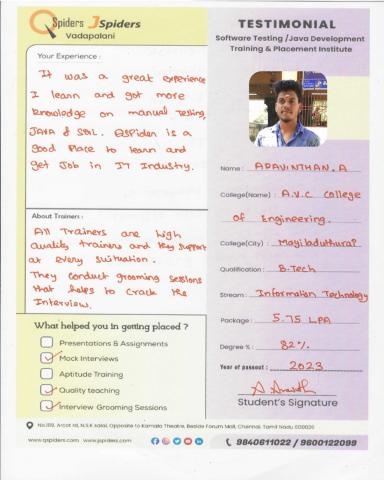 QSpiders JSpiders
Vadapalani
TESTIMONIAL
Software Testing / Java Development
Training & Placement Institute
Your Experience :
It was a great experience
I learn and got more
knowledge on manual testing,
JAVA & SQL. QSpider is a
good Place to learn and
get Job in IT Industry.
Name : ARAVINTHAN.A
College(Name) : A.V.C College
of Engineering.
College(City) : Mayiladuthurai
Qualification : B.Tech
Stream : Information Technology
Package : 5.75 LPA
Degree % : 82%
Year of passout : 2023
Student's Signature
About Trainers :
All Trainers are high
quality trainers and they support
at every suituation.
They conduct grooming sessions
that helps to crack the
Interview.
What helped you in getting placed ?
Presentations & Assignments
Mock Interviews
Aptitude Training
Quality teaching
Interview Grooming Sessions
Arcot rd, N.S.K salai, Opposite to Kamala Theatre, Beside Forum Mall, Chennai, Tamil Nadu 600026
www.qspiders.com www.jspiders.com
9840611022 / 9600122099